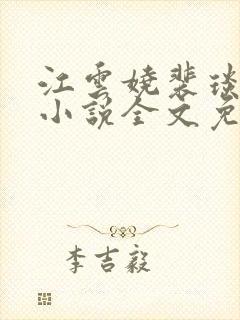 江雲嬈裴琰
小說全文免
李吉毅